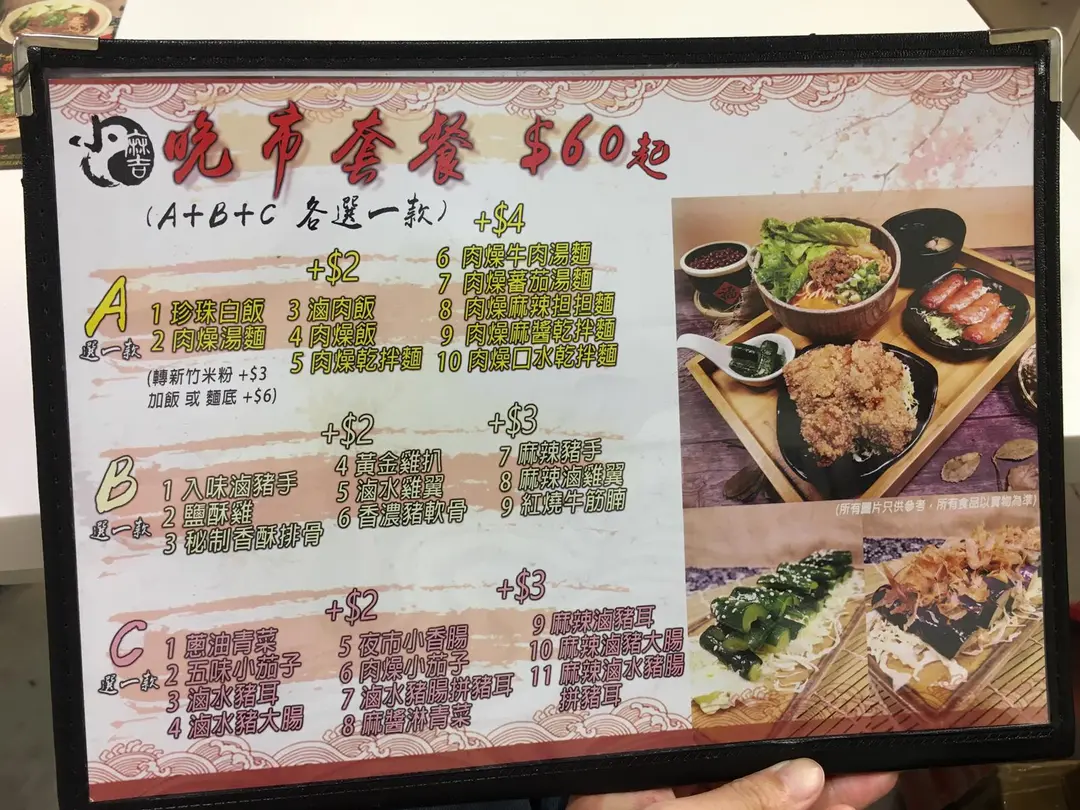 小麻吉
晩市套餐 $60起
(A+B+C 各選一款)
A
選一款
1 珍珠白飯
2 肉燥湯麵
(轉新竹米粉 +$3
加飯 或 麵底 +$6)
+$2
3 滷肉飯
4 肉燥飯
5 肉燥乾拌麵
+$4
6 肉燥牛肉湯麵
7 肉燥蕃茄湯麵
8 肉燥麻辣担担麵
9 肉燥麻醬乾拌麵
10 肉燥口水乾拌麵
B
選一款
1 入味滷豬手
2 鹽酥雞
3 秘制香酥排骨
+$2
4 黃金雞扒
5 滷水雞翼
6 香濃豬軟骨
+$3
7 麻辣豬手
8 麻辣滷雞翼
9 紅燒牛筋腩
C
選一款
1 蔥油青菜
2 五味小茄子
3 滷水豬耳
4 滷水豬大腸
+$2
5 夜市小香腸
6 肉燥小茄子
7 滷水豬腸拼豬耳
8 麻醬淋青菜
+$3
9 麻辣滷豬耳
10 麻辣滷豬大腸
11 麻辣滷水豬腸
拼豬耳
(所有圖片只供參考，所有食品以實物為準)